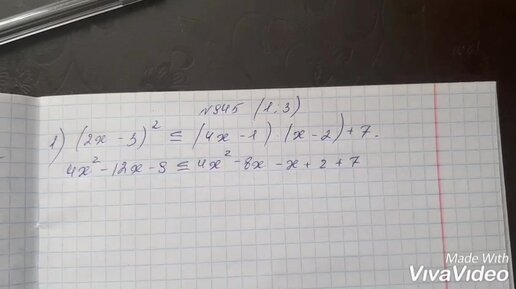 №945 (1; 3)
1) (2x - 3)² ≤ (4x - 1) (x - 2) + 7.
4x² - 12x - 9 ≤ 4x² - 8x - x + 2 + 7
Made With
VivaVideo